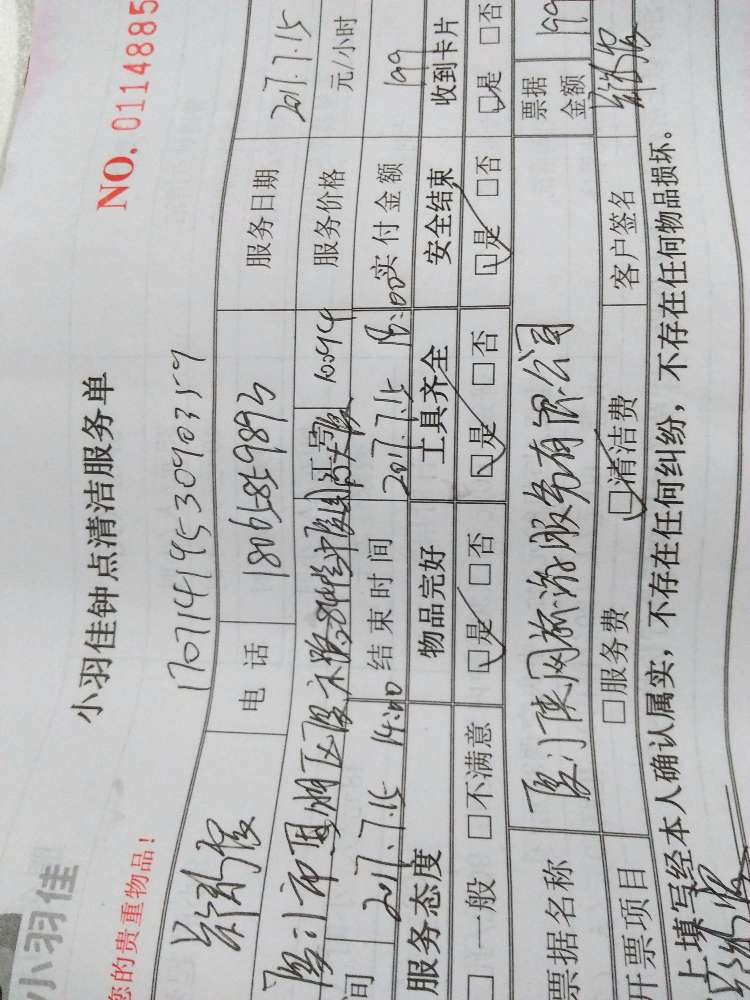 小羽佳
小羽佳钟点清洁服务单
NO. 0114885
您的贵重物品！
1707141953090359
电 话 18065859893 服务日期 2017.7.15
厦门市思明区 服务价格 元/小时
间 2017.7.15 14:00 结束时间 2017.7.15 18:00 实付金额 199
服务态度 物品完好 工具齐全 安全结束 收到卡片
□一般 □不满意 □是 □否 □是 □否 □是 □否 □是 □否
票据名称 厦门侠网旅游服务有限公司 票据金额 199
开票项目 □服务费 □清洁费 客户签名
上填写经本人确认属实，不存在任何纠纷，不存在任何物品损坏。